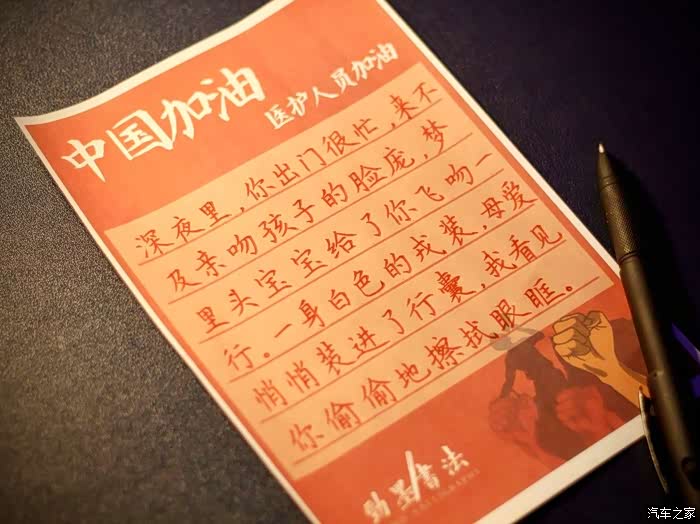 中国加油
医护人员加油
深夜里，你出门很忙，来不
及亲吻孩子的脸庞，梦
里头宝宝给了你飞吻一
行。一身白色的戎装，母爱
悄悄装进了行囊，我看见
你偷偷地擦拭眼眶。
墨书法
汽车之家